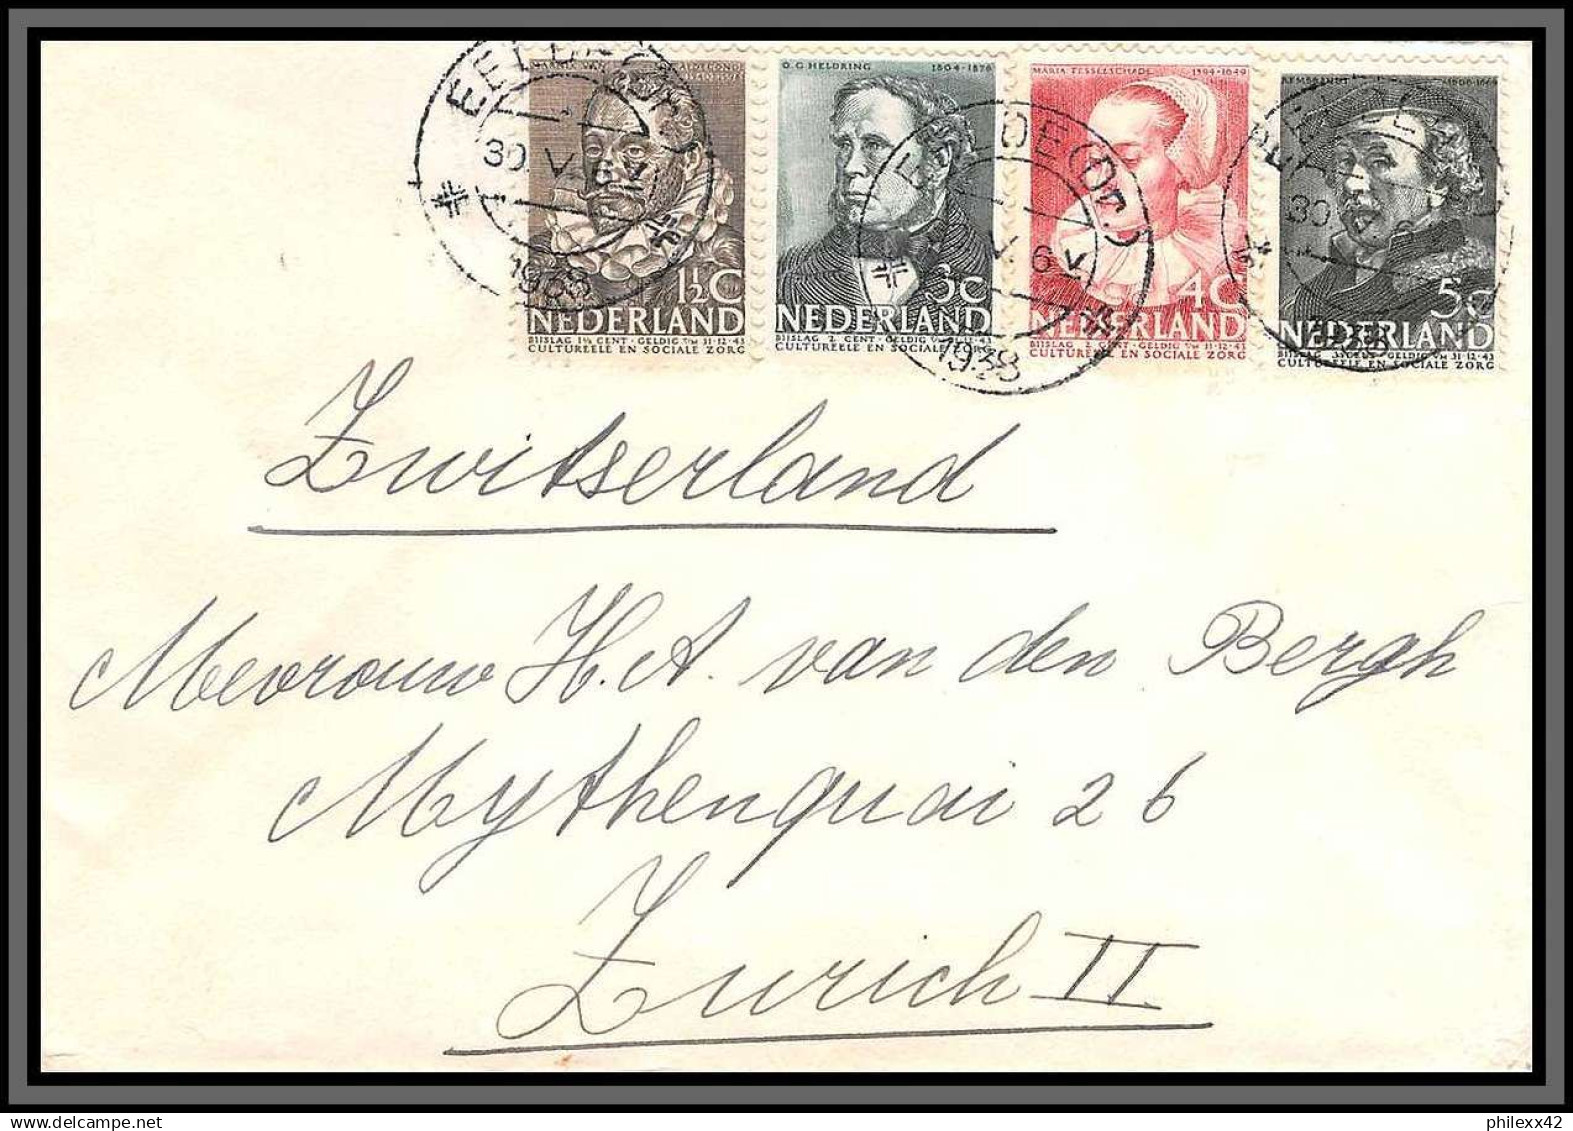 MARNIX VAN ST ALDEGONDE
1½ C
NEDERLAND
BIJSLAG 1½ CENT · GELDIG T/M 31·12·43
CULTUREELE EN SOCIALE ZORG
O.G HELDRING 1804-1876
3C
NEDERLAND
BIJSLAG 2 CENT · GELDIG T/M 31·12·43
CULTUREELE EN SOCIALE ZORG
MARIA TESSELSCHADE 1594-1649
4C
NEDERLAND
BIJSLAG 2 CENT · GELDIG T/M 31·12·43
CULTUREELE EN SOCIALE ZORG
REMBRANDT 1606-1669
5C
NEDERLAND
BIJSLAG GELDIG T/M 31·12·43
CULTUREELE EN SOCIALE ZORG
EELDE (Dr.)
30 V
1938
EELDE (Dr.)
V 6
1938
30
1938
Zwitserland
Mevrouw H. A. van den Bergh
Mythenquai 26
Zurich II
philexx42